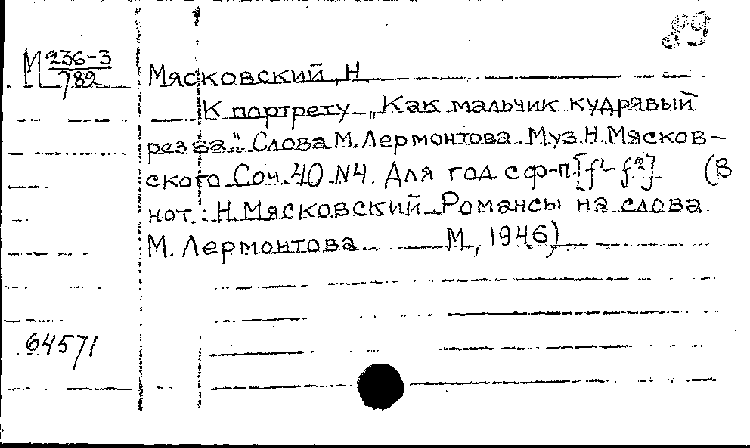 89
М 236-3
782
Мясковский, Н
К портрету „Как мальчик кудрявый
резва." Слова М. Лермонтова. Муз. Н. Мясков-
ского. Соч. 40 N4. Для гол с ф-п. [f¹- f²] (В
нот.: Н. Мясковский. Романсы на слова
М. Лермонтова М, 1946)
64571